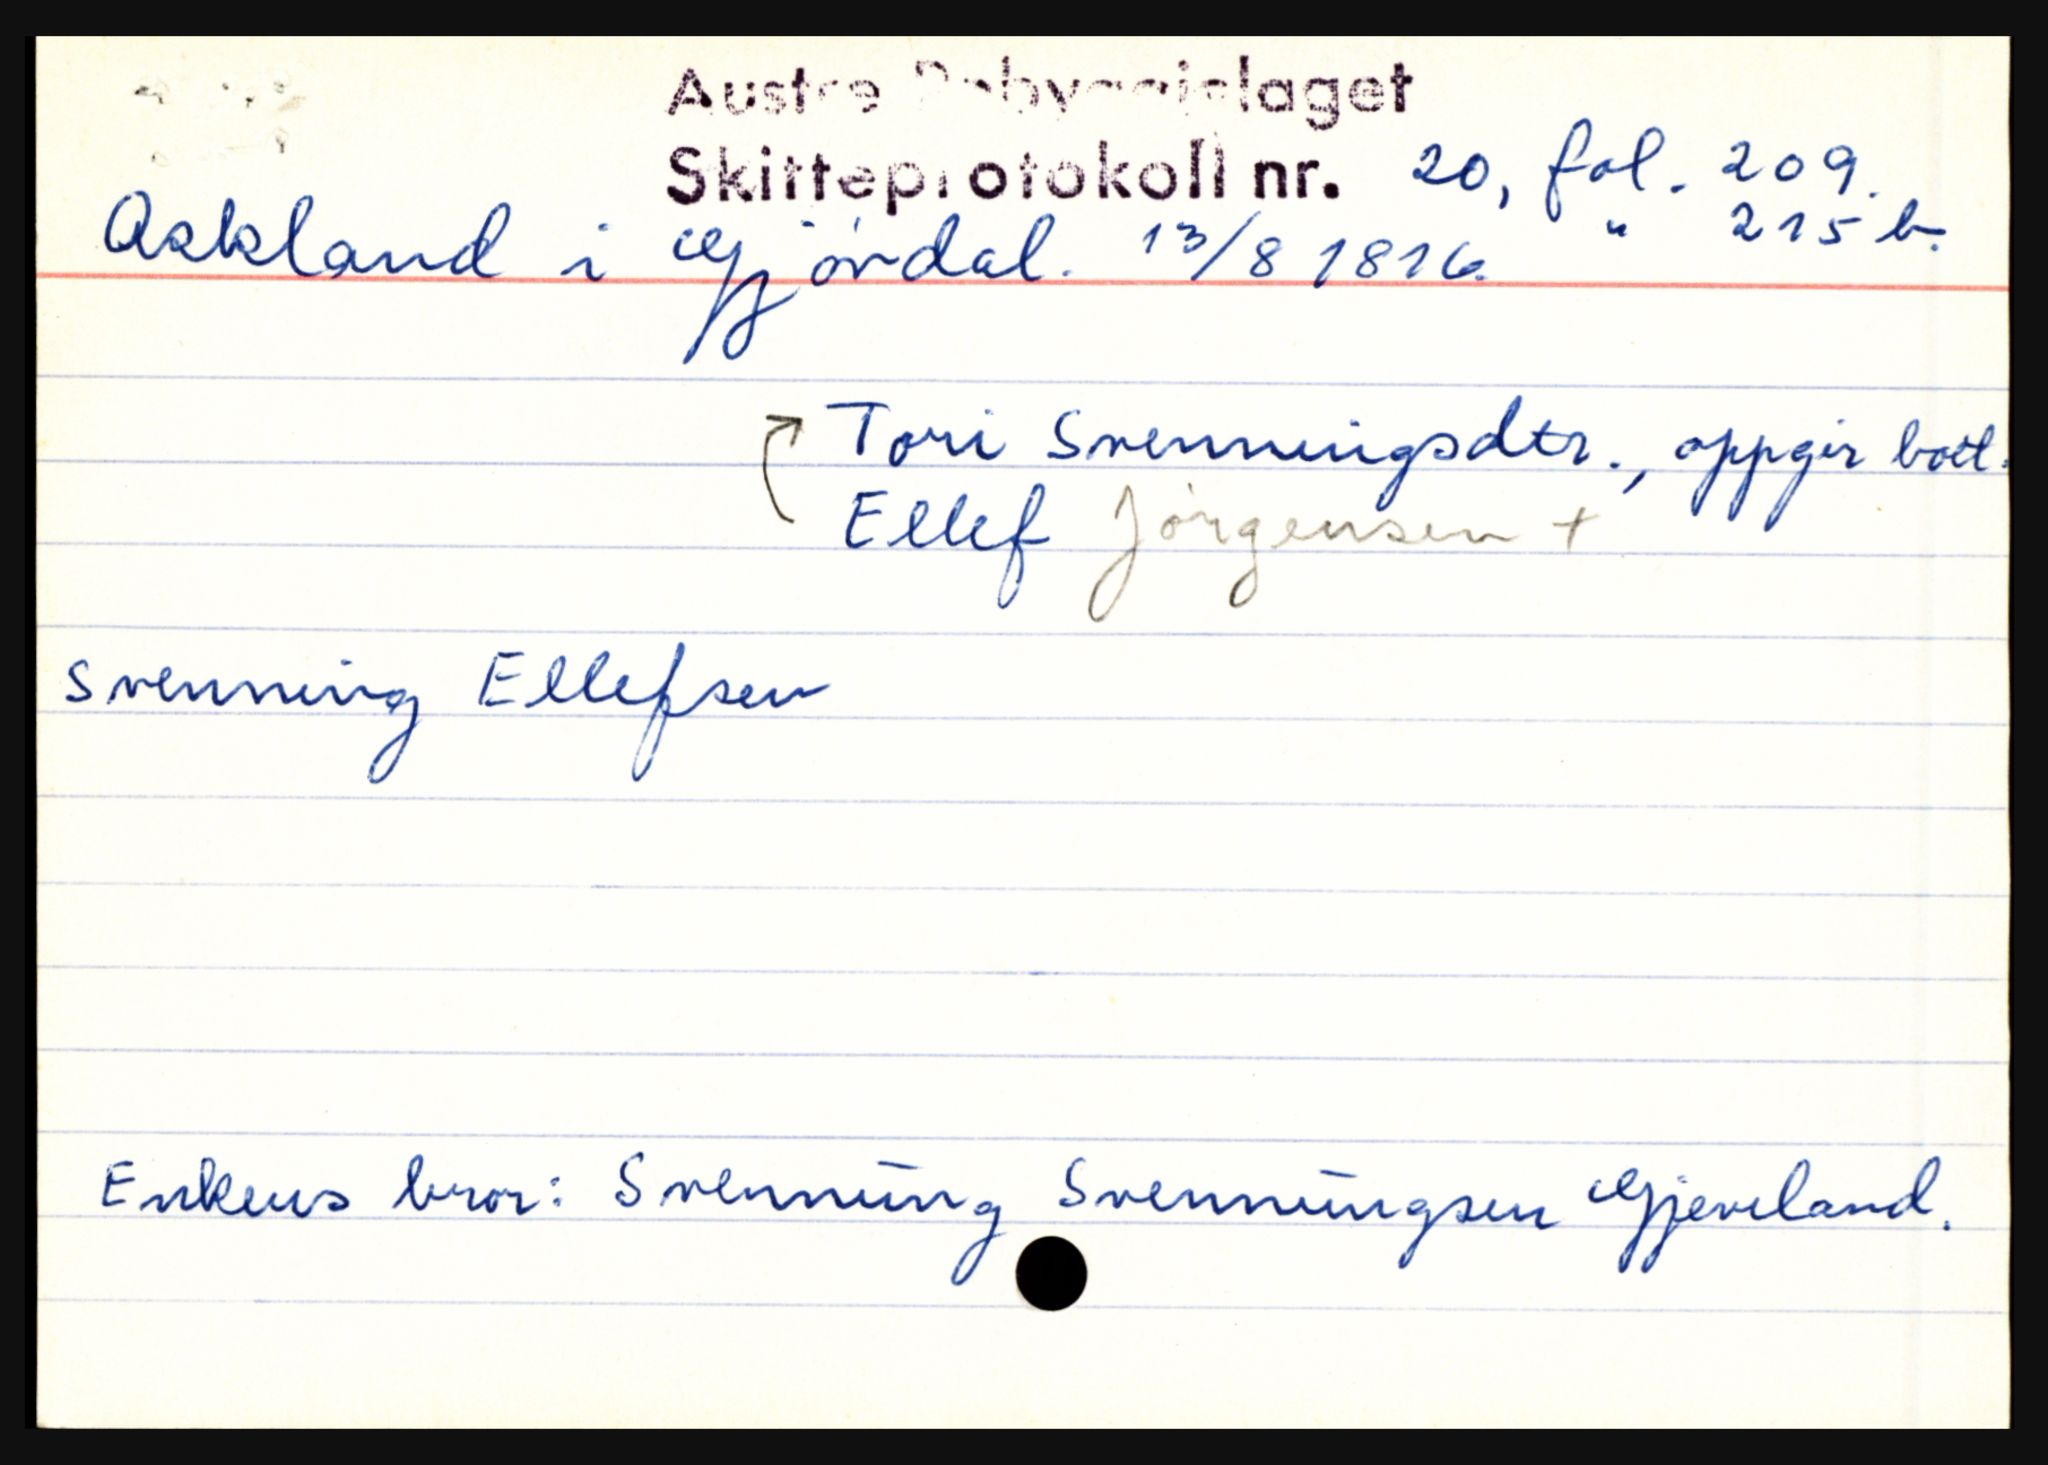 Austre Robyggjelaget
Skifteprotokoll nr. 20, fol. 209.
Askland i Gjövdal. 13/8 1816. " 215 b.
Tori Svenningsdtr., oppgir boet.
Ellef Jörgensen +
Svenning Ellefsen
Enkens bror: Svenning Svenningsen Gjeveland.